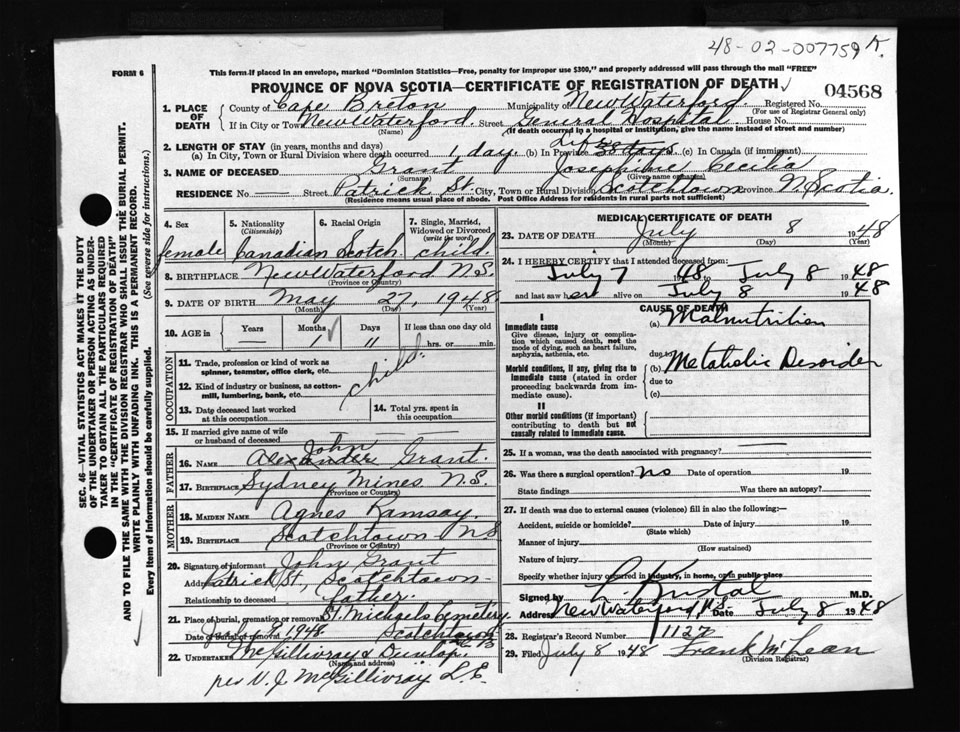 48-02-007759 K.
FORM 6
This form if placed in an envelope, marked "Dominion Statistics—Free, penalty for improper use $300," and properly addressed will pass through the mail "FREE"
PROVINCE OF NOVA SCOTIA—CERTIFICATE OF REGISTRATION OF DEATH
04568
1. PLACE OF DEATH
County of Cape Breton Municipality of New Waterford. Registered No.
(For use of Registrar General only)
If in City or Town New Waterford. Street General Hospital. House No.
(Name) (If death occurred in a hospital or institution, give the name instead of street and number)
2. LENGTH OF STAY (in years, months and days)
(a) In City, Town or Rural Division where death occurred 1 day. (b) In Province Life 38 days (c) In Canada (if immigrant)
3. NAME OF DECEASED Grant Josephine Cecilia
(Surname) (Given name or names)
RESIDENCE No. — Street Patrick St. City, Town or Rural Division Scotchtown Province N. Scotia.
(Residence means usual place of abode. Post Office Address for residents in rural parts not sufficient)
4. Sex female
5. Nationality (Citizenship) Canadian
6. Racial Origin Scotch.
7. Single, Married, Widowed or Divorced (write the word) child.
8. BIRTHPLACE New Waterford N.S.
(Province or Country)
9. DATE OF BIRTH May 27, 1948.
(Month) (Day) (Year)
10. AGE in Years — Months 1 Days 11 If less than one day old hrs. or min.
OCCUPATION
11. Trade, profession or kind of work as spinner, teamster, office clerk, etc. child.
12. Kind of industry or business, as cotton-mill, lumbering, bank, etc.
13. Date deceased last worked at this occupation
14. Total yrs. spent in this occupation
15. If married give name of wife or husband of deceased —
FATHER
16. NAME John Alexander Grant.
17. BIRTHPLACE Sydney Mines N.S.
(Province or Country)
MOTHER
18. MAIDEN NAME Agnes Ramsay.
19. BIRTHPLACE Scotchtown N.S
(Province or Country)
20. Signature of informant John Grant
Address Patrick St, Scotchtown
Relationship to deceased father.
21. Place of burial, cremation or removal St. Michaels Cemetery.
Date of burial or removal July 9, 1948. Scotchtown
22. UNDERTAKER McGillivray & Dunlop.
(Name and address)
per V. J. McGillivray L.E.
MEDICAL CERTIFICATE OF DEATH
23. DATE OF DEATH July 8 1948
(Month) (Day) (Year)
24. I HEREBY CERTIFY that I attended deceased from:
July 7 1948 to July 8 1948
and last saw her alive on July 8 1948
CAUSE OF DEATH
I
Immediate cause
Give disease, injury or complication which caused death, not the mode of dying, such as heart failure, asphyxia, asthenia, etc.
(a) Malnutrition
due to
Morbid conditions, if any, giving rise to immediate cause (stated in order proceeding backwards from immediate cause).
(b) Metabolic Desorder
due to
(c)
II
Other morbid conditions (if important) contributing to death but not causally related to immediate cause.
25. If a woman, was the death associated with pregnancy? —
26. Was there a surgical operation? no Date of operation 19
State findings Was there an autopsy?
27. If death was due to external causes (violence) fill in also the following:—
Accident, suicide or homicide? Date of injury 19
(State which)
Manner of injury
(How sustained)
Nature of injury
Specify whether injury occurred in industry, in home, or in public place
Signed by M.D.
Address New Waterford, N.S. Date July 8 1948
28. Registrar's Record Number 1127
29. Filed July 8 1948 Frank McLean
(Division Registrar)
SEC. 46—VITAL STATISTICS ACT MAKES IT THE DUTY
OF THE UNDERTAKER OR PERSON ACTING AS UNDER-
TAKER TO OBTAIN ALL THE PARTICULARS REQUIRED
IN THE "CERTIFICATE OF REGISTRATION OF DEATH"
AND TO FILE THE SAME WITH THE DIVISION REGISTRAR WHO SHALL ISSUE THE BURIAL PERMIT.
WRITE PLAINLY WITH UNFADING INK. THIS IS A PERMANENT RECORD.
Every item of information should be carefully supplied. (See reverse side for instructions.)